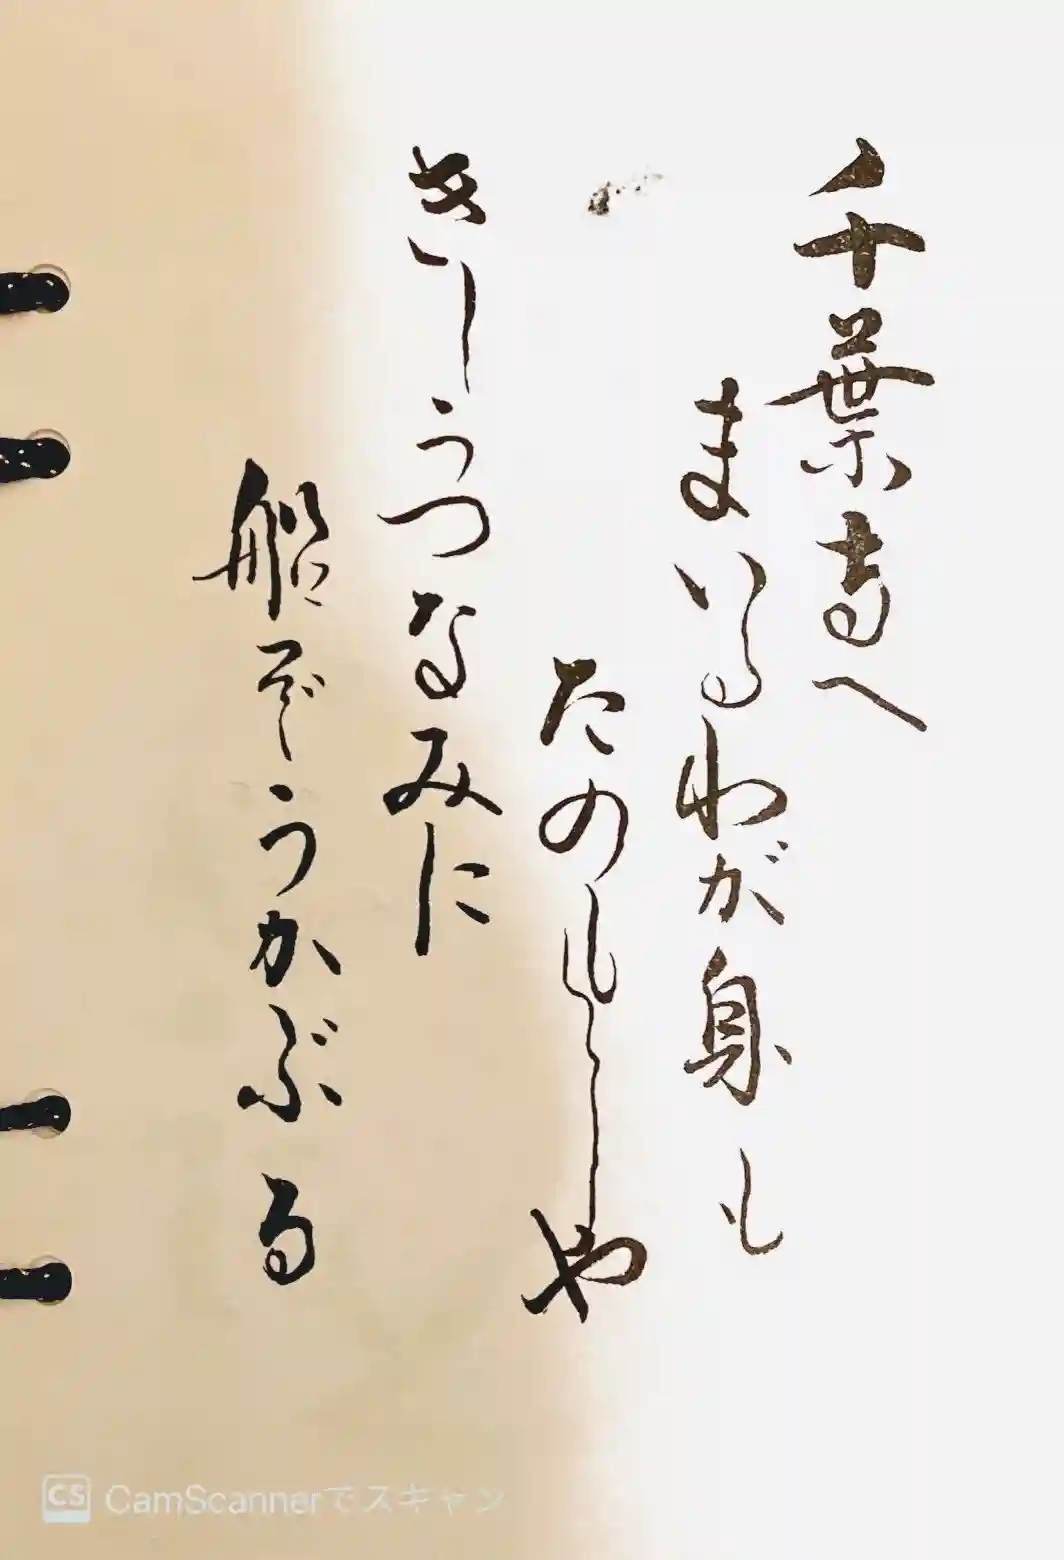 千葉寺へ
まいるわが身も
たのもしや
きしうつなみに
船ぞうかぶる
CS CamScannerでスキャン